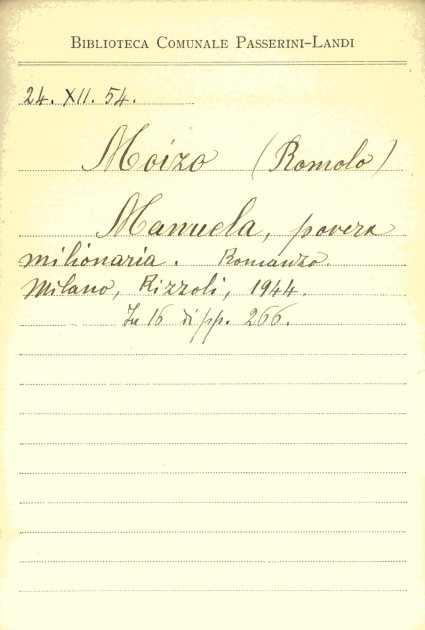 BIBLIOTECA COMUNALE PASSERINI-LANDI
24. XII. 54.
Moizo (Romolo)
Manuela, povera
milionaria. Romanzo.
Milano, Rizzoli, 1944.
In 16 di pp. 266.